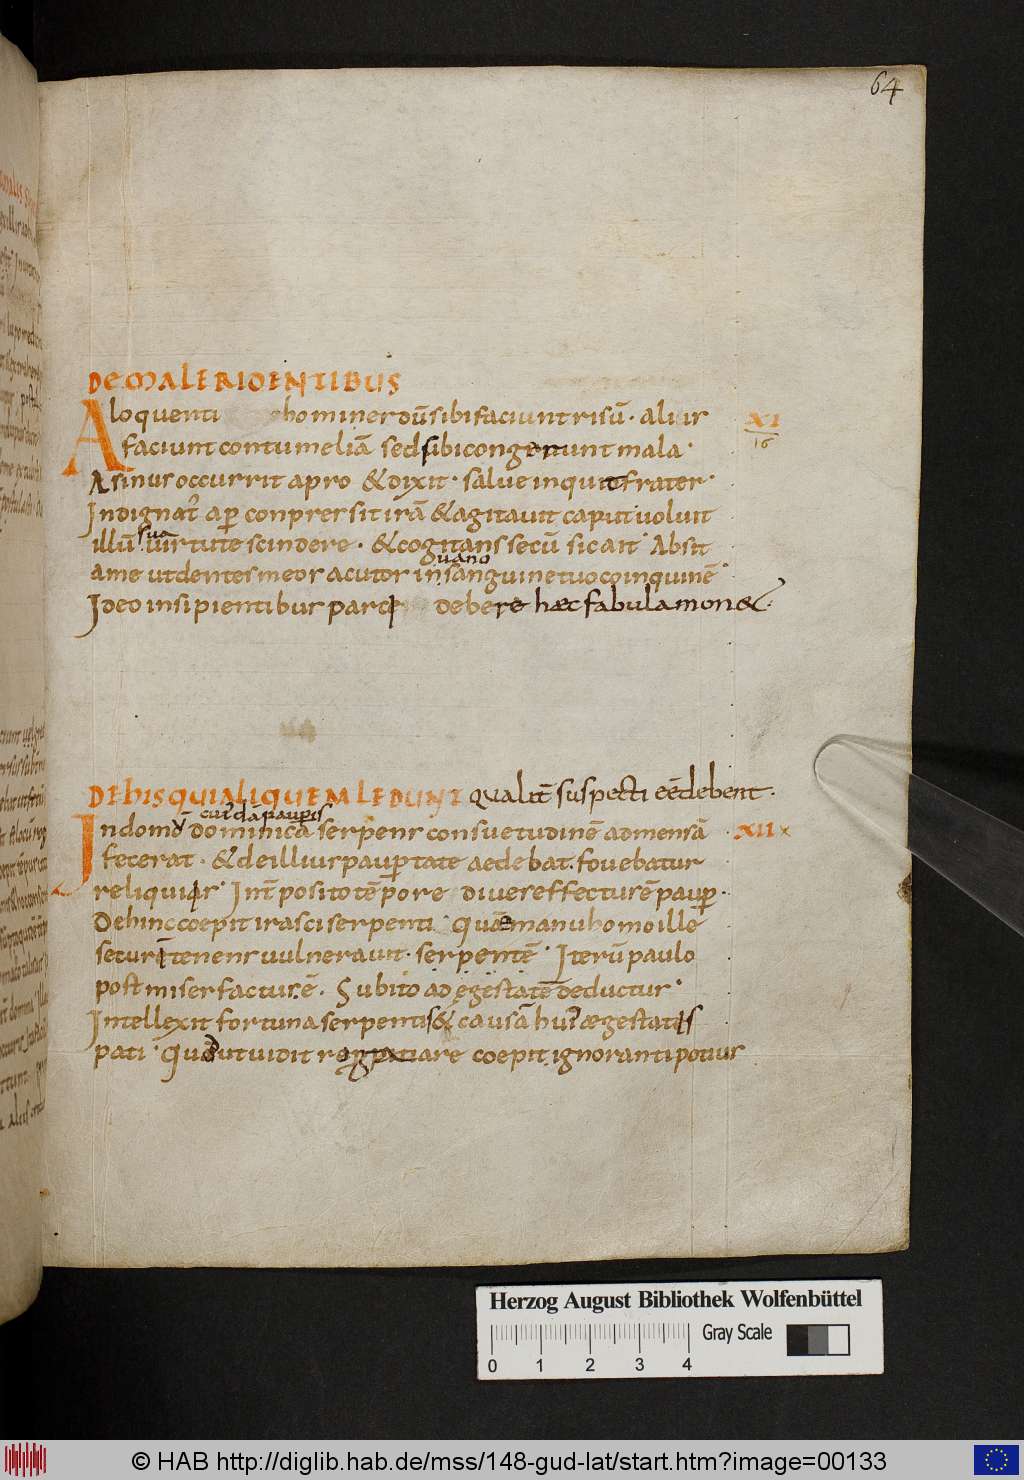 64
DE MALE RIDENTIBUS
Aloquenti homines dū sibi faciunt risū. aliis
XI
16
faciunt contumeliā sed sibi congerunt mala.
Asinus occurrit apro & dixit. salue inquit frater.
Indignat̄ ap̄ conpressit irā & agitauit caput uoluit
sua
illū uirtute scindere. & cogitans secū sic ait. Absit
uano
a me ut dentes meos acutos in sanguine tuo coinquinē.
Ideo insipientibus parci debere haec fabula mon&.
DE HIS QUI ALIQUEM LEDUNT qualit̄ suspecti eē debent.
cuiusdā paupis
In domo dominica serpens consuetudinē ad mensā
XII
fecerat. & de illius paup̄tate aedebat. fouebatur
reliquiis. Int̄posito tēpore diues effectus ē paup̄.
Dehinc coepit irasci serpenti. Quē manu homo ille
securī tenens uulnerauit. serpentē. Iterū paulo
post miser factus ē. Subito ad egestatē deductus.
Intellexit fortuna serpentis & causā hui' aegestatis
pati. Qu ut uidit coepit ignoranti potius
Herzog August Bibliothek Wolfenbüttel
Gray Scale
0 1 2 3 4
© HAB http://diglib.hab.de/mss/148-gud-lat/start.htm?image=00133